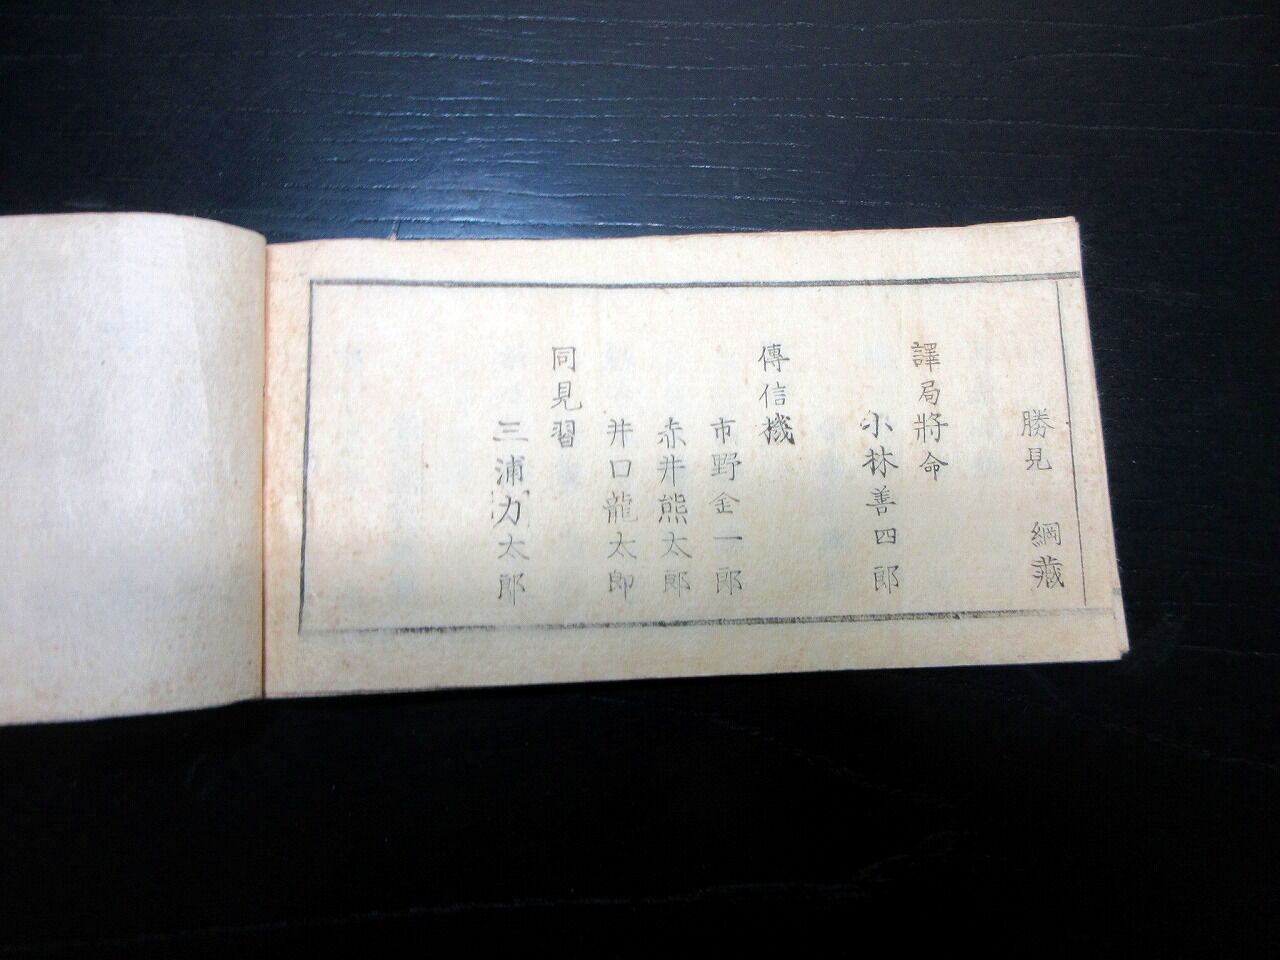 勝見 綱藏
譯局將命
小林善四郎
傳信機
市野金一郎
赤井熊太郎
井口龍太郎
同見習
三浦力太郎